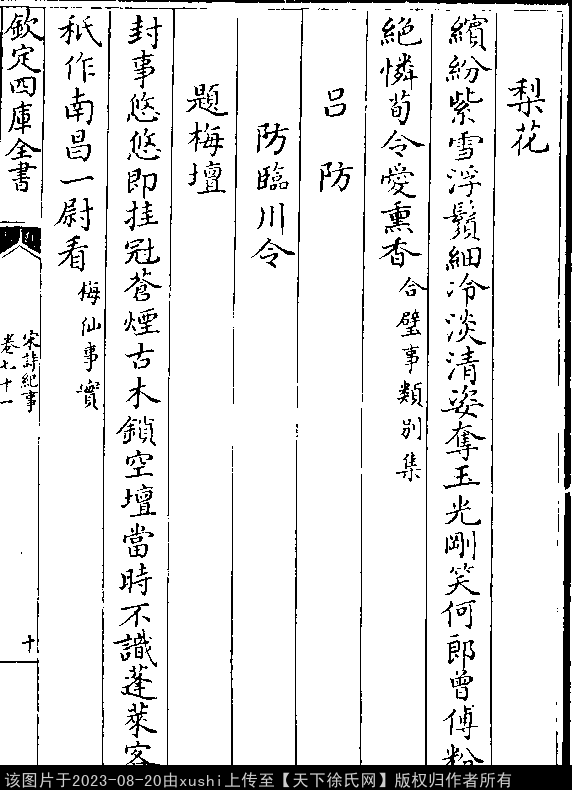 梨花
繽紛紫雪浮鬚細冷淡清姿奪玉光剛笑何郎曾傅粉
絕憐荀令愛熏香 合璧事類別集
吕防
防臨川令
題梅壇
封事悠悠即挂冠蒼煙古木鎖空壇當時不識蓬萊客
秖作南昌一尉看 梅仙事實
欽定四庫全書
宋詩紀事
卷七十一
十
该图片于2023-08-20由xushi上传至【天下徐氏网】版权归作者所有